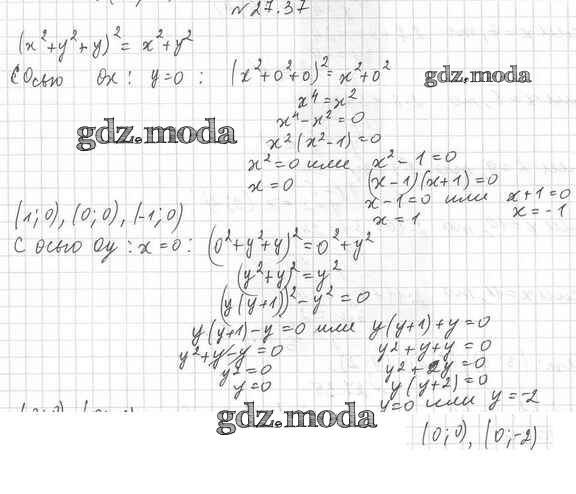 №27.37
(x²+y²+y)²= x²+y²
С Осью Ox: y=0 : (x²+0²+0)²=x²+0²
gdz.moda
x⁴=x²
x⁴-x²=0
gdz.moda
x²(x²-1)=0
x²=0 или x²-1=0
x=0 (x-1)(x+1)=0
x-1=0 или x+1=0
x=1 x=-1
(1;0), (0;0), (-1;0)
С осью Oy: x=0: (0²+y²+y)²=0²+y²
(y²+y)²=y²
(y(y+1))²-y²=0
y(y+1)-y=0 или y(y+1)+y=0
y²+y-y=0 y²+y+y=0
y²=0 y²+2y=0
y=0 y(y+2)=0
y=0 или y=-2
gdz.moda
(0;0), (0;-2)